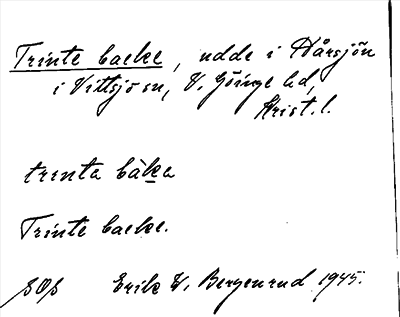 Trinte backe, udde i Hårsjön
i Vittsjö sn, V. Göinge hd,
Krist. l.
trinta bàka
Trinte backe.
Erik W. Bergenrud 1945.